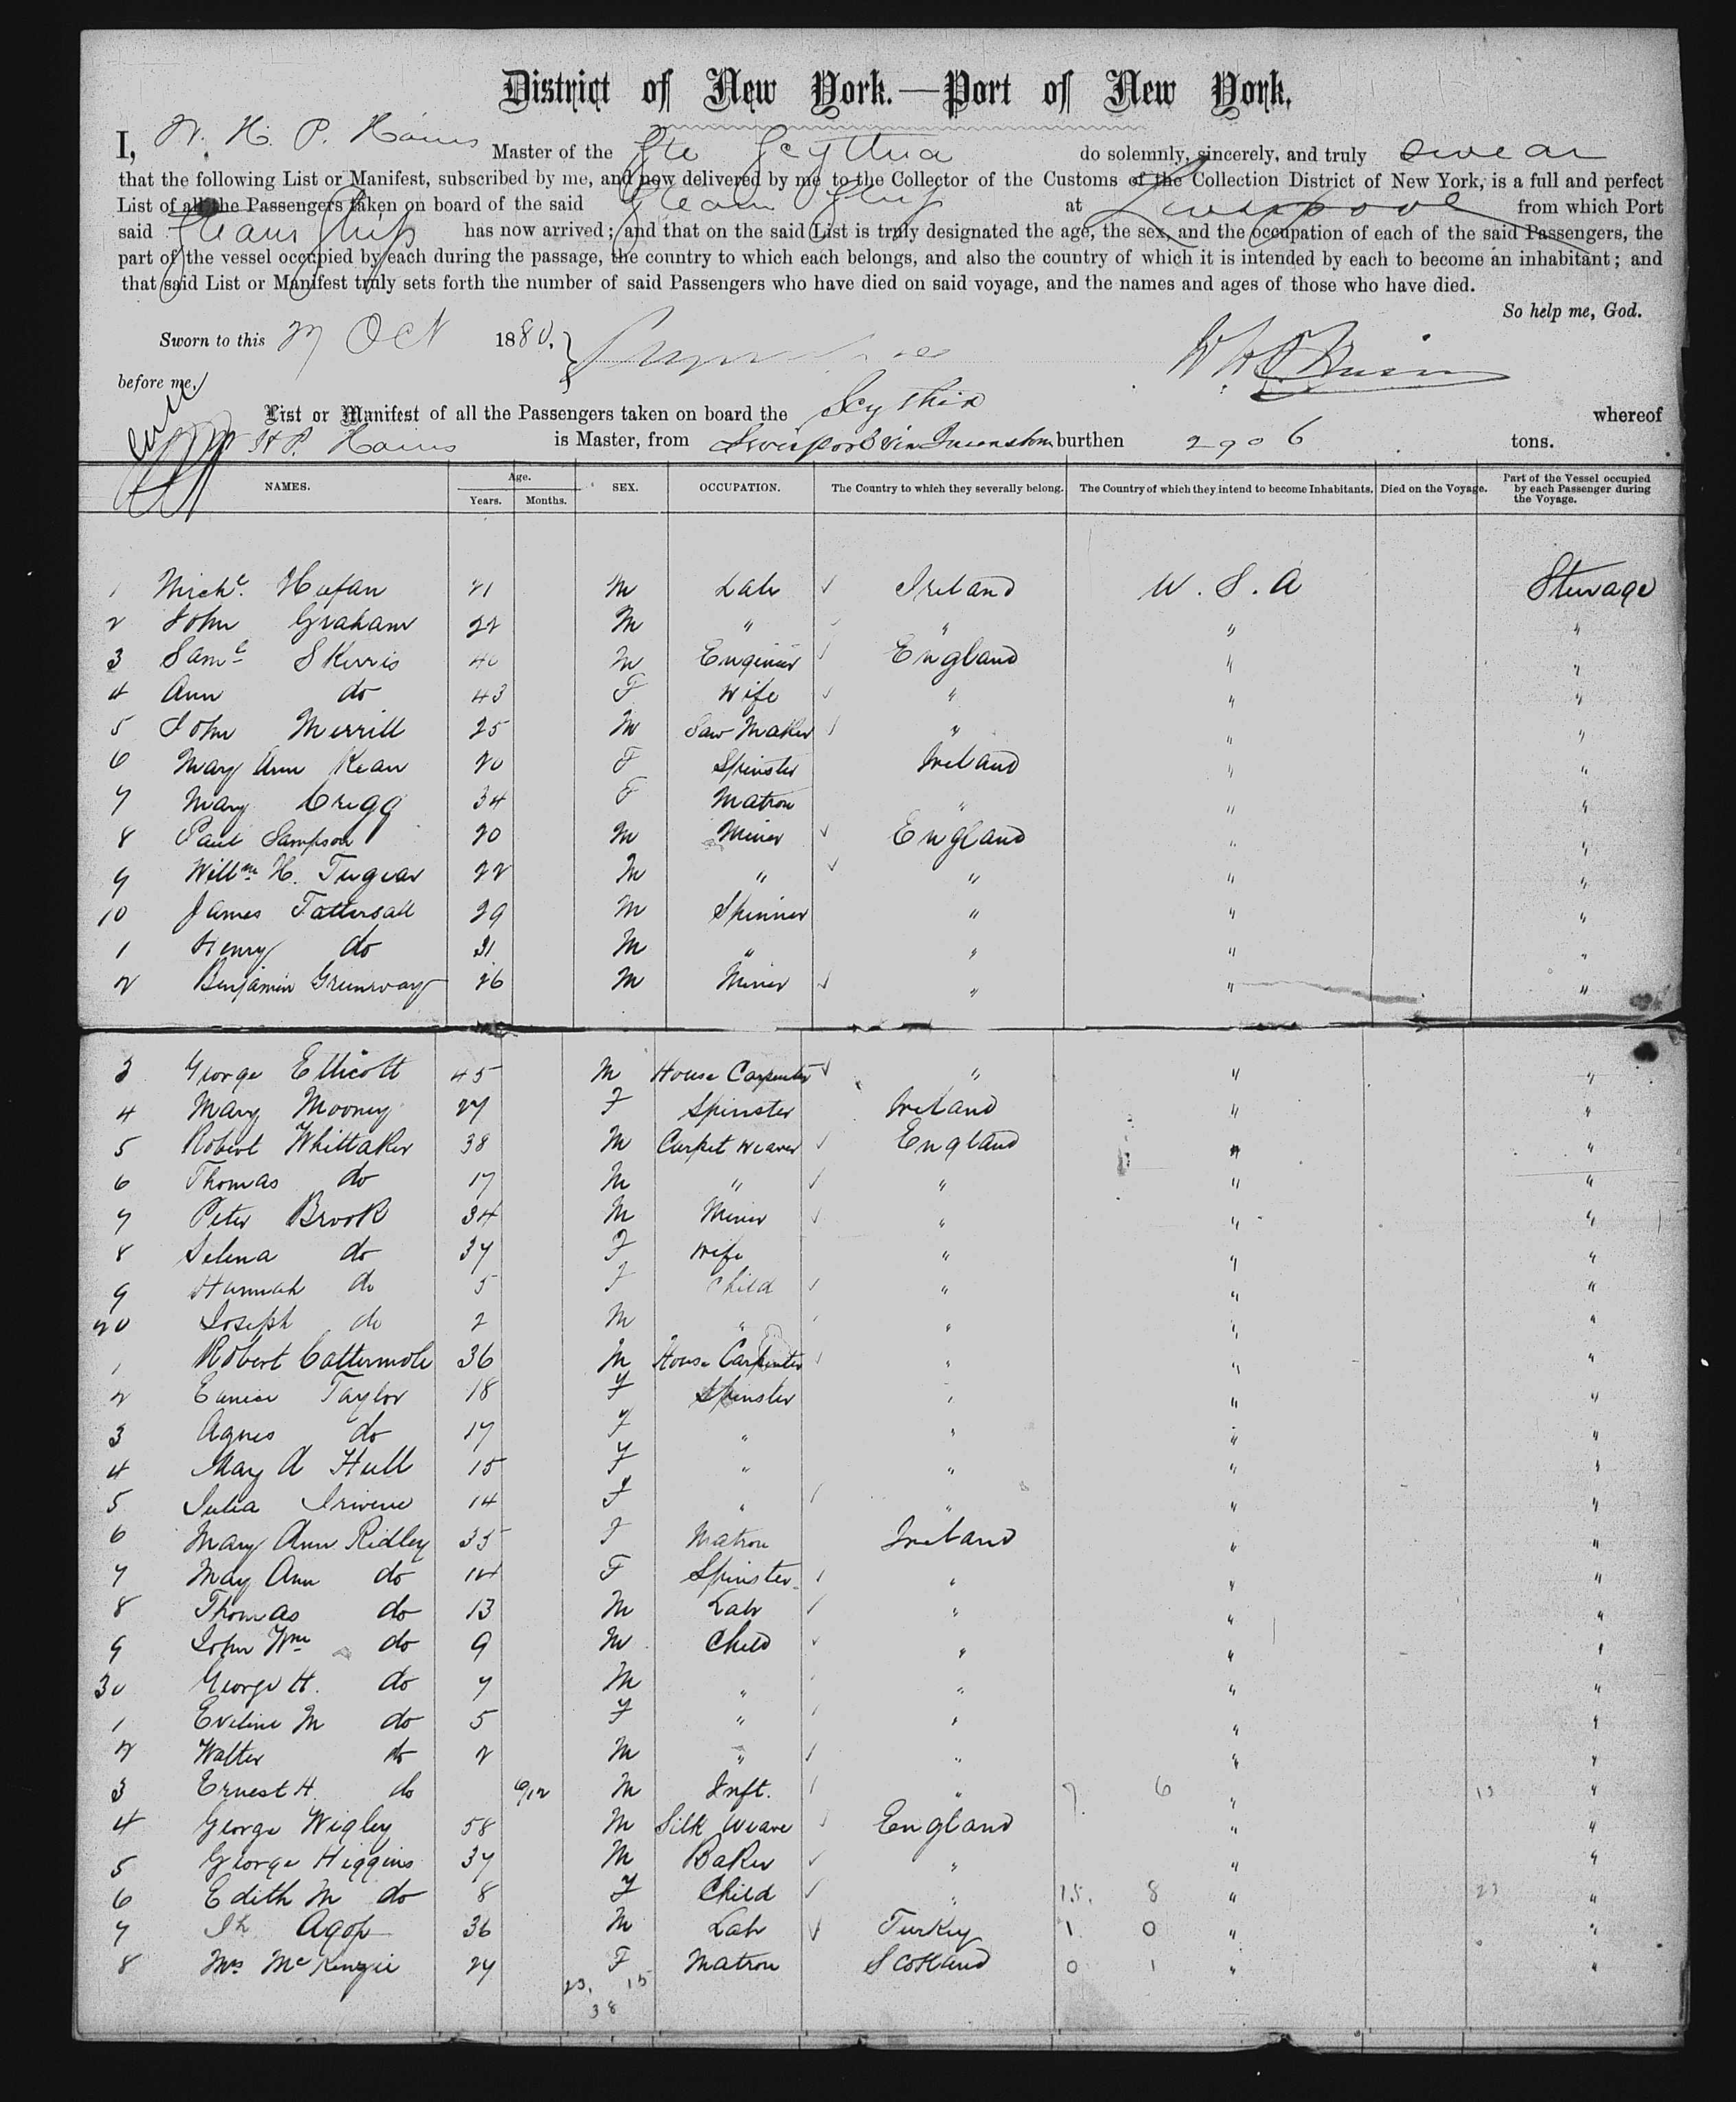 District of New York.—Port of New York.
I, W. H. P. Hains Master of the Str Scythia do solemnly, sincerely, and truly swear
that the following List or Manifest, subscribed by me, and now delivered by me to the Collector of the Customs of the Collection District of New York, is a full and perfect
List of all the Passengers taken on board of the said Steam Ship at Liverpool from which Port
said Steam Ship has now arrived; and that on the said List is truly designated the age, the sex, and the occupation of each of the said Passengers, the
part of the vessel occupied by each during the passage, the country to which each belongs, and also the country of which it is intended by each to become an inhabitant; and
that said List or Manifest truly sets forth the number of said Passengers who have died on said voyage, and the names and ages of those who have died.
So help me, God.
Sworn to this 27 Oct 1880, W H P Hains
before me,
List or Manifest of all the Passengers taken on board the Scythia whereof
H P. Hains is Master, from Liverpool via Queenstown burthen 2906 tons.
NAMES. Age. Years. Months. SEX. OCCUPATION. The Country to which they severally belong. The Country of which they intend to become Inhabitants. Died on the Voyage. Part of the Vessel occupied by each Passenger during the Voyage.
1 Michl. 21 M Labr Ireland U. S. A Steerage
2 John Graham 22 M " " " "
3 Saml Skerris 40 M Engineer England " "
4 Ann do 43 F Wife " " "
5 John Merrill 25 M Saw Maker " " "
6 Mary Ann Kean 20 F Spinster Ireland " "
7 Mary Cregg 34 F Matron " " "
8 Paul Sampson 20 M Miner England " "
9 Willm H. Tregear 22 M " " " "
10 James Tattersall 29 M Spinner " " "
1 Henry do 31 M " " " "
2 Benjamin Greenway 26 M Miner " " "
3 George Ellicott 45 M House Carpenter " " "
4 Mary Mooney 27 F Spinster Ireland " "
5 Robert Whittaker 38 M Carpet Weaver England " "
6 Thomas do 17 M " " " "
7 Peter Brook 34 M Miner " " "
8 Selena do 37 F Wife " " "
9 Hannah do 5 F Child " " "
20 Joseph do 2 M " " " "
1 Robert Cattermole 36 M House Carpenter " " "
2 Eunice Taylor 18 F Spinster " " "
3 Agnes do 17 F " " " "
4 May A Hull 15 F " " " "
5 Julia 14 F " " " "
6 Mary Ann Ridley 35 F Matron Ireland " "
7 May Ann do 14 F Spinster " " "
8 Thomas do 13 M Labr " " "
9 John Wm do 9 M Child " " "
30 George H. do 7 M " " " "
1 Eveline M do 5 F " " " "
2 Walter do 2 M " " " "
3 Ernest H. do 6/12 M Inft. " 7. 6 " 13 "
4 George Wigley 58 M Silk Weaver England " "
5 George Higgins 37 M Baker " " "
6 Edith M do 8 F Child " 15. 8 " 23 "
7 Agop 36 M Labr Turkey 1 0 " "
8 Mrs McKenzie 24 F Matron Scotland 0 1 " "
23. 15
38